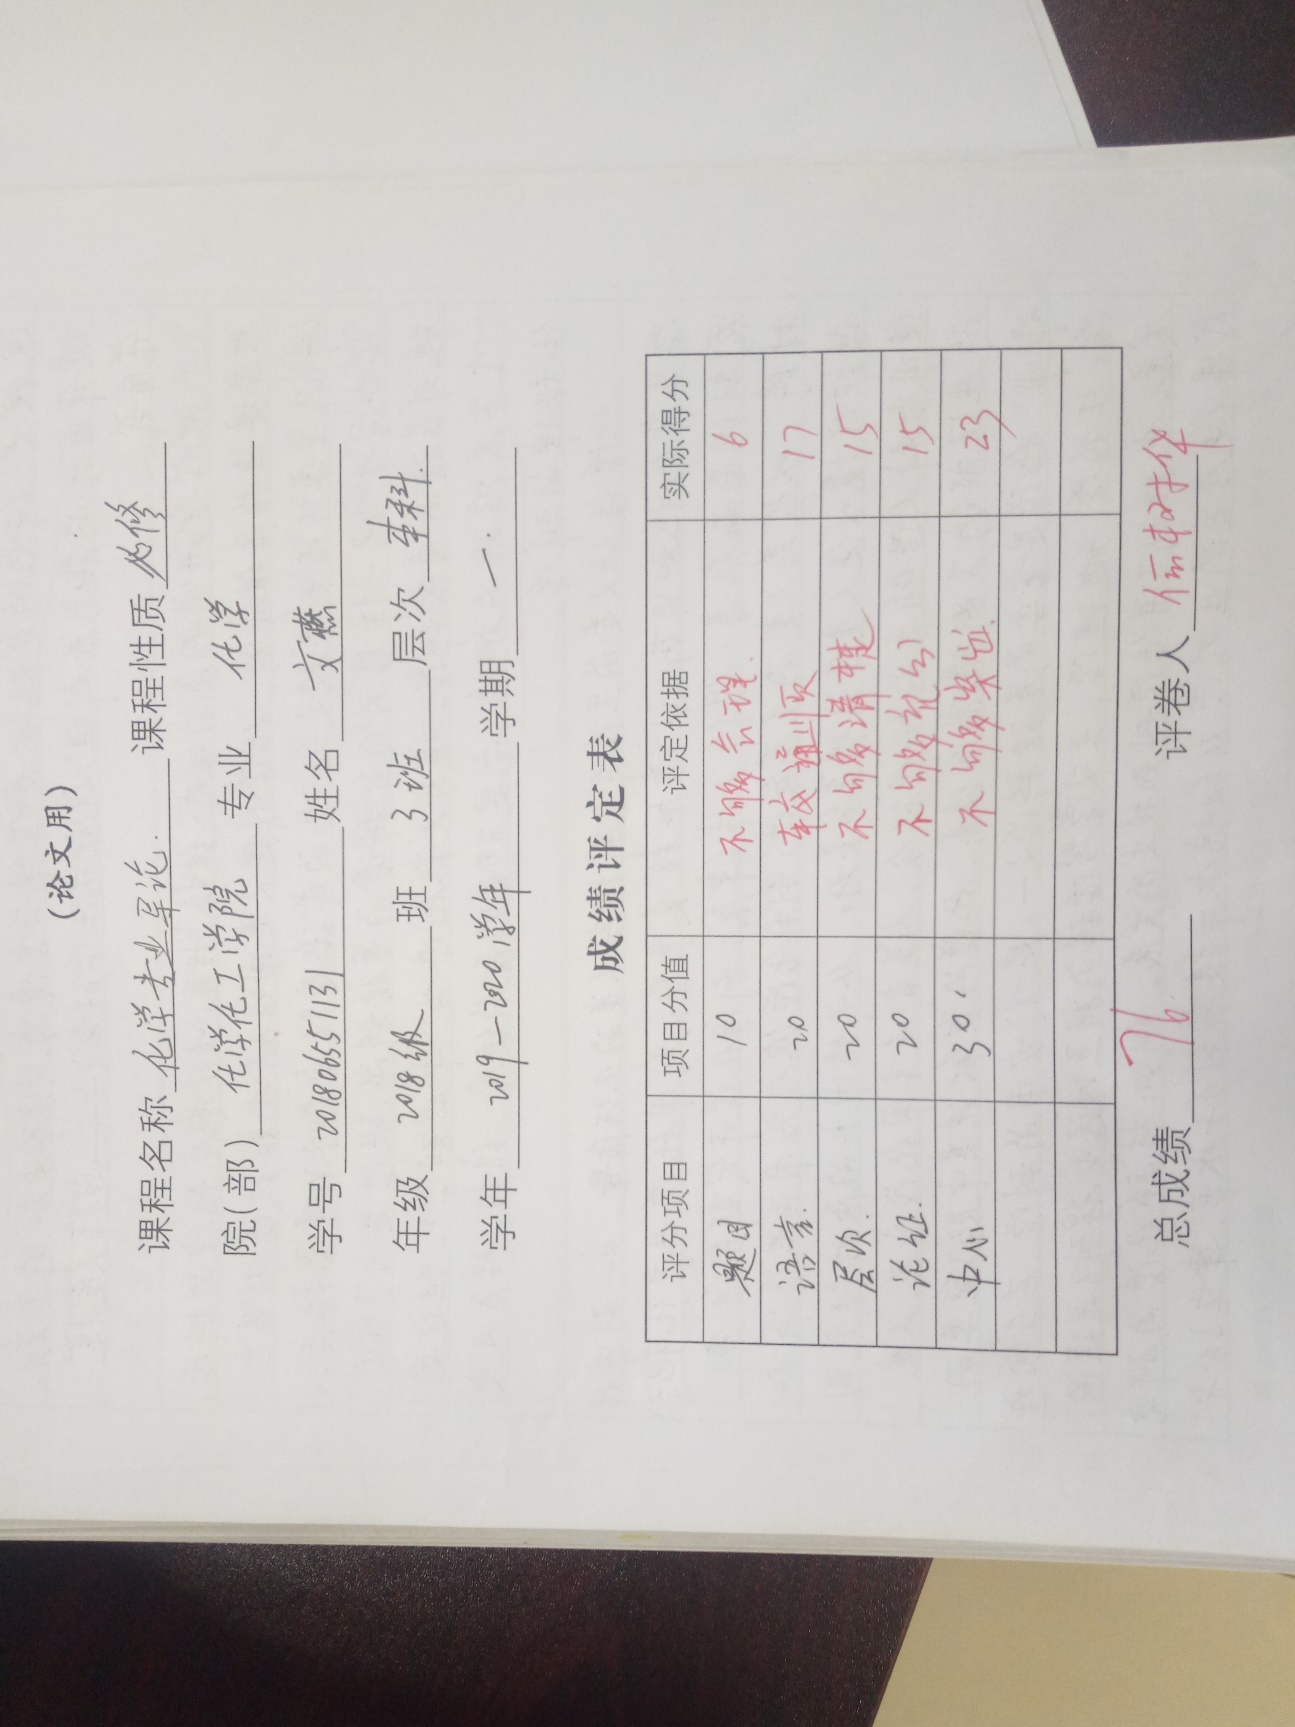 (论文用)
课程名称 化学专业导论. 课程性质 必修
院(部) 化学化工学院 专业 化学
学号 201806551131 姓名 文燕
年级 2018级 班 3班 层次 本科.
学年 2019—2020学年 学期 一.
成绩评定表
评分项目 项目分值 评定依据 实际得分
题目 10 不够合理. 6
语言. 20 较通顺 17
层次. 20 不够清楚 15
论证. 20 不够充分 15
中心 30. 不够突出. 23
总成绩 76. 评卷人 伍树华